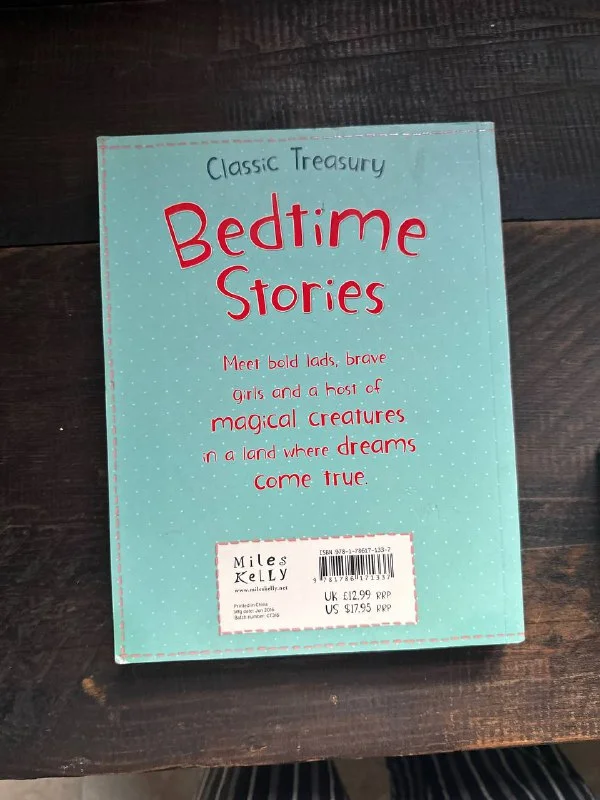 Classic Treasury
Bedtime
Stories
Meet bold lads, brave
girls and a host of
magical creatures
in a land where dreams
come true.
Miles
Kelly
www.mileskelly.net
Printed in China
Mfg date: Jan 2016
ISBN 978-1-78617-133-7
9 781786 171337
UK £12.99 RRP
US $17.95 RRP